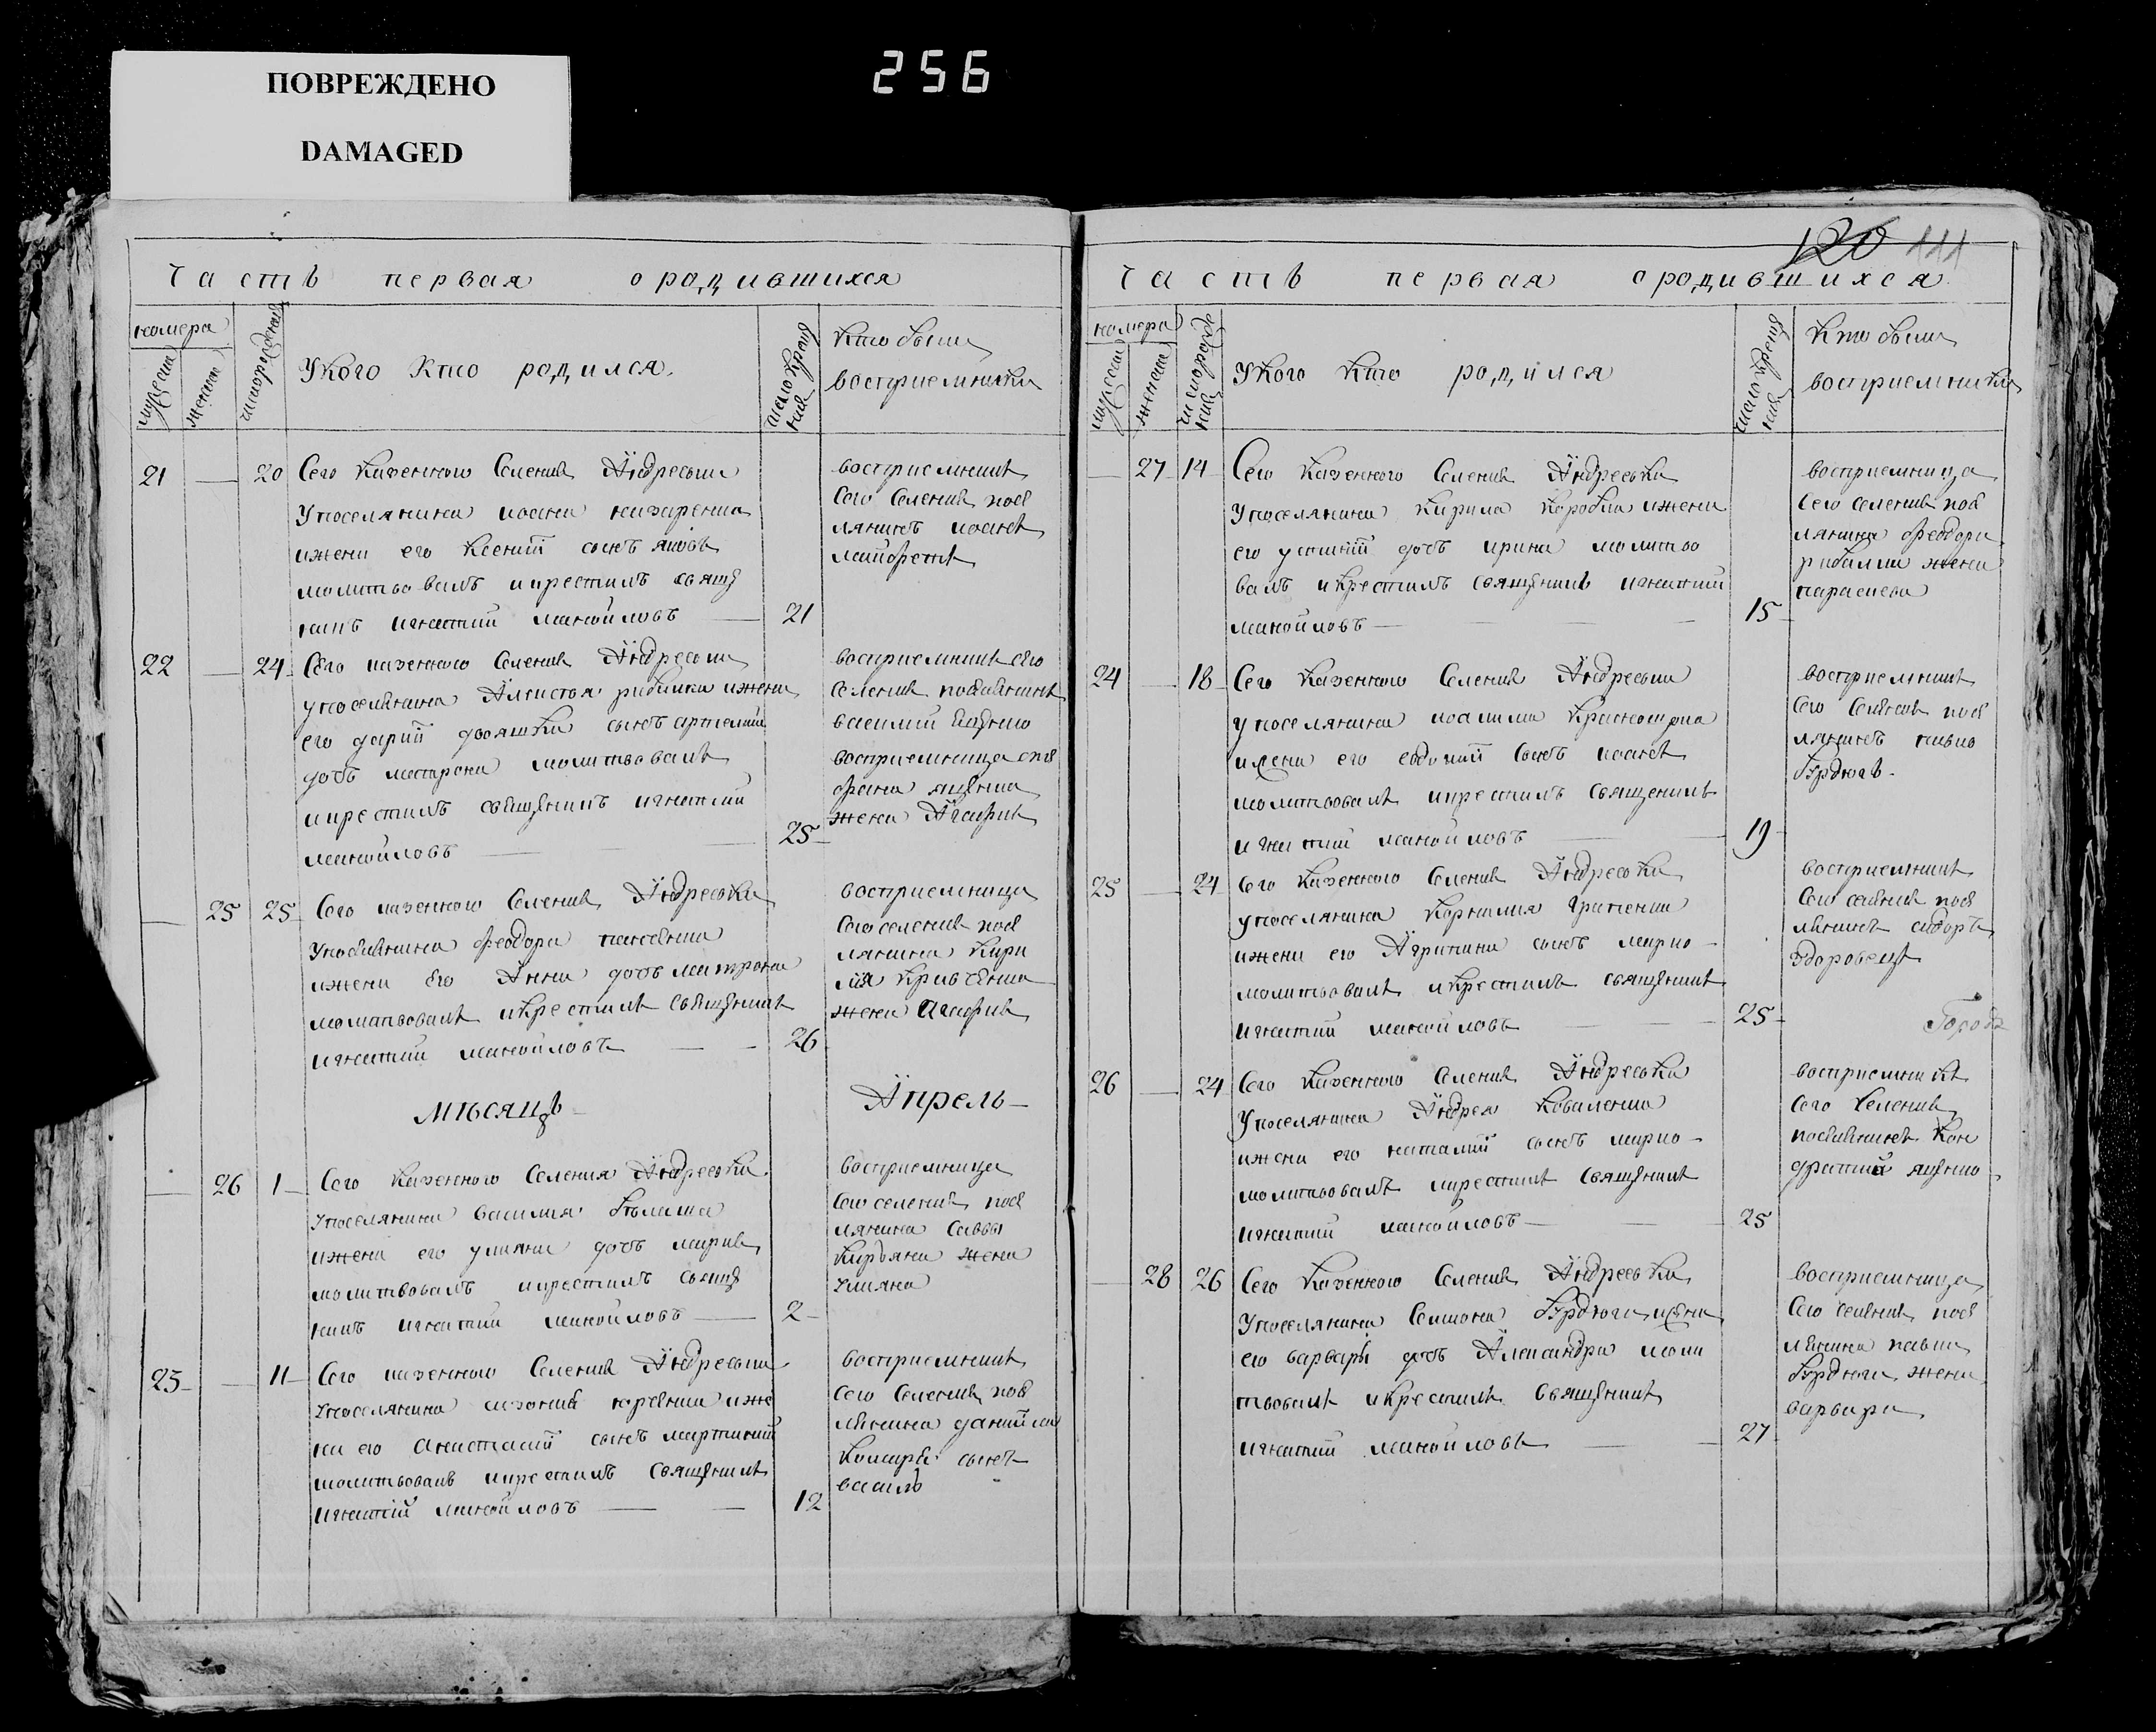 ПОВРЕЖДЕНО
DAMAGED
256
Часть первая ородившихся
номера
мужеска
женска
число рождения
Укого Кто родился.
число крещения
Кто были
восприемники
21 — 20 Сего Казенного Селения Андреевки
Упоселянина иоанна назаренка
ижени его Ксений сынъ яковъ
молитвовалъ икрестилъ свяще
никъ игнатий манойловъ — 21
восприемникъ
Сего Селения посе
лянинъ иоаннъ
22 — 24 Сего казенного Селения Андреевки
упоселянина рибалки ижени
его дарий двояшки сынъ артемий
дочь матрона молитвовалъ
икрестилъ священикъ игнатий
манойловъ — 25
восприемникъ сего
Селения поселянинъ
василий
восприемница
жена Агафия
— 25 25 Сего казенного Селения Андреевки
Упоселянина феодора
ижени Его Анни дочь матрона
молитвовалъ икрестилъ священикъ
игнатий манойловъ — 26
восприемница
Сего селения посе
лянина Кири
ла Кривченка
жена Агафия
МѢсяцъ Апрель —
— 26 1 — Сего Казенного Селения Андреевки
Упоселянина василия
ижени его улияни дочь мария
молитвовалъ икрестилъ свяще
никъ игнатий манойловъ — 2
восприемница
Сего селения посе
лянина Саввы
жена
улияна
23 — 11 — Сего казенного Селения Андреевки
Упоселянина иже
ни его анастасий сынъ
молитвовалъ икрестилъ священикъ
игнатий манойловъ — 12
восприемникъ
Сего Селения посе
лянина даниила
Комара сынъ
василь
120 111
Часть первая ородившихся
номера
мужеска
женска
число рожде
ния
Укого Кто родился
число креще
ния
Кто были
восприемники
— 27 14 Сего Казенного Селения Андреевки
Упоселянина Кирила Коробки ижени
его дочь ирина молитво
валъ икрестилъ священикъ игнатий
манойловъ — 15
восприемница
Сего селения посе
лянина феодора
рибалки жена
параскева
24 — 18 Сего Казенного Селения Андреевки
упоселянина иоакима
ижени его евдокий Сынъ иоаннъ
молитвовалъ икрестилъ Священикъ
игнатий манойловъ — 19
восприемникъ
Сего Селения посе
лянинъ павло
Бурдюгъ.
25 — 24 Сего Казенного Селения Андреевки
упоселянина Корнилия Гриценка
ижени его Агрипини сынъ марко —
молитвовалъ икрестилъ священикъ
игнатий манойловъ — 25
восприемникъ
Сего селения посе
лянинъ сидоръ
здоровецъ
26 — 24 Сего Казенного Селения Андреевки
Упоселянина Андрея Коваленка
ижени его наталий сынъ марко —
молитвовалъ икрестилъ Священикъ
игнатий манойловъ — 25
восприемникъ
Сего Селения
поселянинъ Кон
дратий
— 28 26 Сего Казенного Селения Андреевки
Упоселянина Симиона Бурдюги ижени
его варвары дочь Александра моли
твовалъ икрестилъ Священикъ
игнатий манойловъ — 27
восприемница
Сего селения посе
лянина павла
Бурдюги жена
варвара